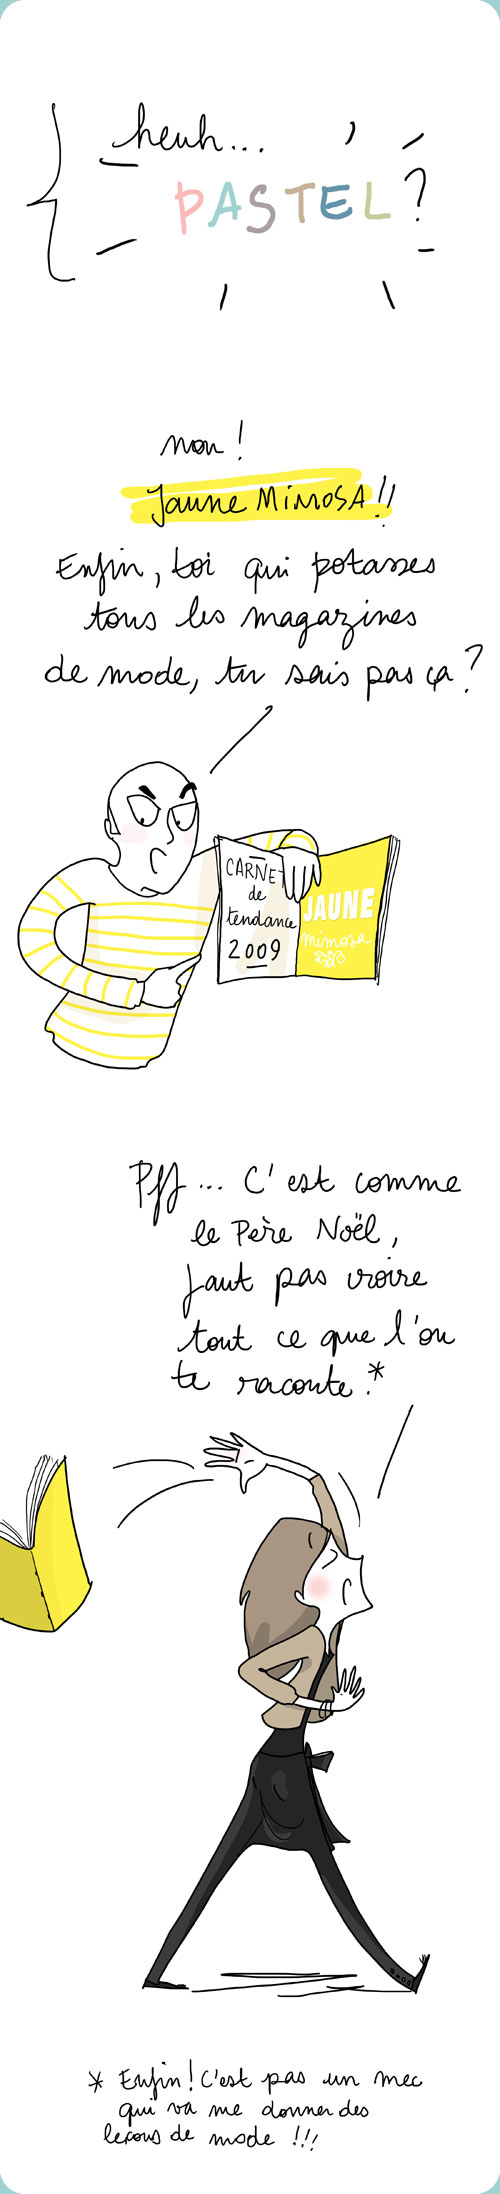 heuh...
PASTEL?
non!
Jaune MiMOSA!!
Enfin, toi qui potasses
tous les magazines
de mode, tu sais pas ça?
CARNET
de
tendance
2009
JAUNE
mimosa
Pff... C'est comme
le Père Noël,
faut pas croire
tout ce que l'on
te raconte.*
* Enfin! C'est pas un mec
qui va me donner des
leçons de mode !!!